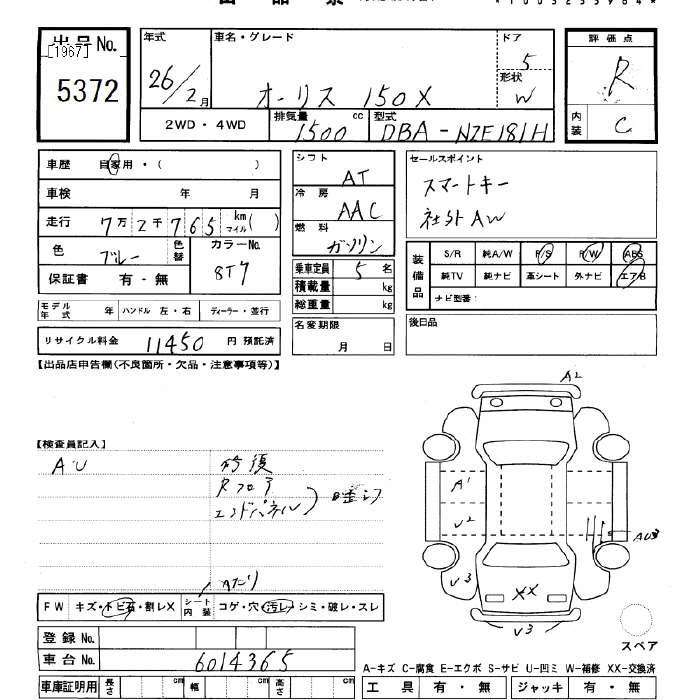 出品票
*1003255964*
出品No.
[1967]
5372
年式
26/2月
車名・グレード
オーリス 150X
ドア
5
形状
W
評価点
R
内装
C
2WD・4WD
排気量
1500 cc
型式
DBA-NZE181H
車歴 自家用・( )
車検 年 月
走行 7万2千765 km マイル( )
色 ブルー 色替 カラーNo. 8T7
保証書 有・無
シフト
AT
冷房
AAC
燃料
ガソリン
セールスポイント
スマートキー
社外AW
乗車定員 5 名
積載量 kg
総重量 kg
装備品
S/R 純A/W P/S P/W ABS
純TV 純ナビ 革シート 外ナビ エアB
ナビ型番:
モデル年式 年 ハンドル 左・右 ディーラー・並行
名変期限
月 日
後日品
リサイクル料金 11450 円 預託済
【出品店申告欄(不良箇所・欠品・注意事項等)】
A2
【検査員記入】
AU
修復
Rフロア
エンドパネル
A1
U2
AU3
U3
XX
U3
Aたり
FW キズ・トビ石・割レX シート内装 コゲ・穴・汚レ・シミ・破レ・スレ
スペア
登録No.
車台No. 6014365
A-キズ C-腐食 E-エクボ S-サビ U-凹ミ W-補修 XX-交換済
車庫証明用 長さ cm 幅 cm 高さ cm
工具 有・無 ジャッキ 有・無